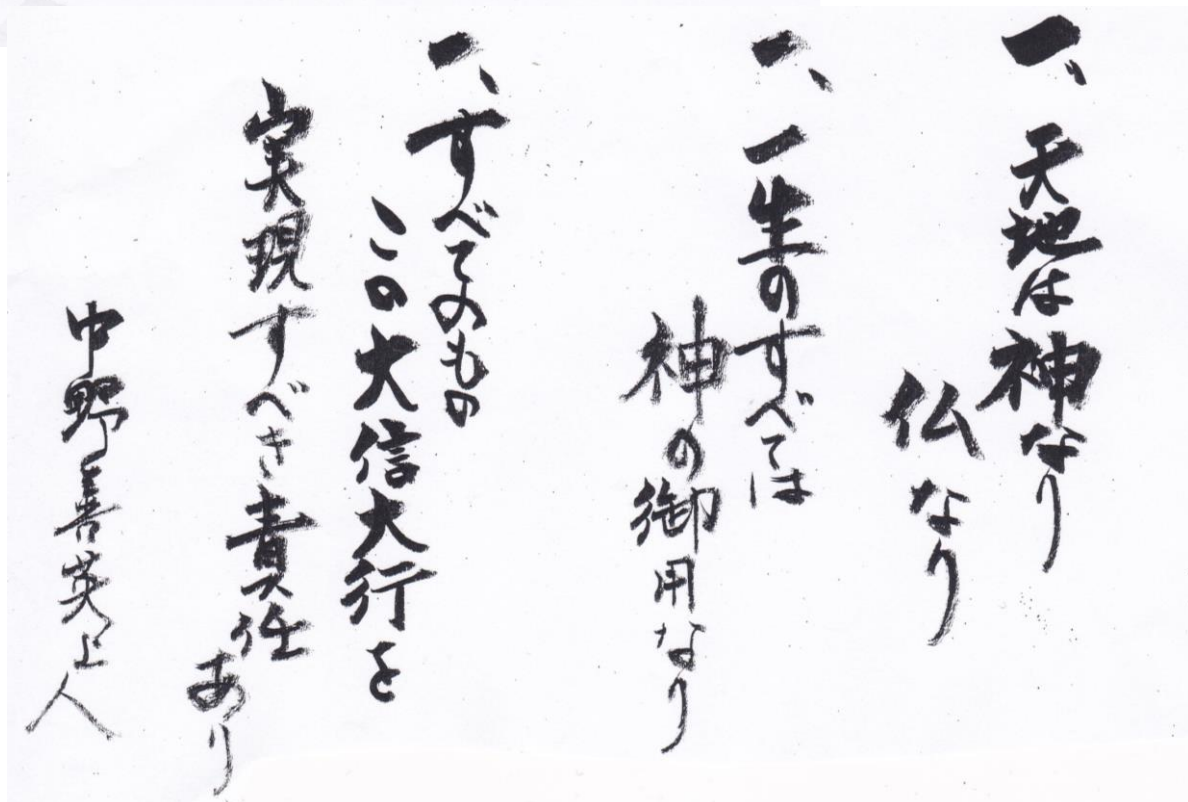 一、天地は神なり
仏なり
一、一生のすべては
神の御用なり
一、すべてのもの
この大信大行を
実現すべき責任あり
中野善英上人